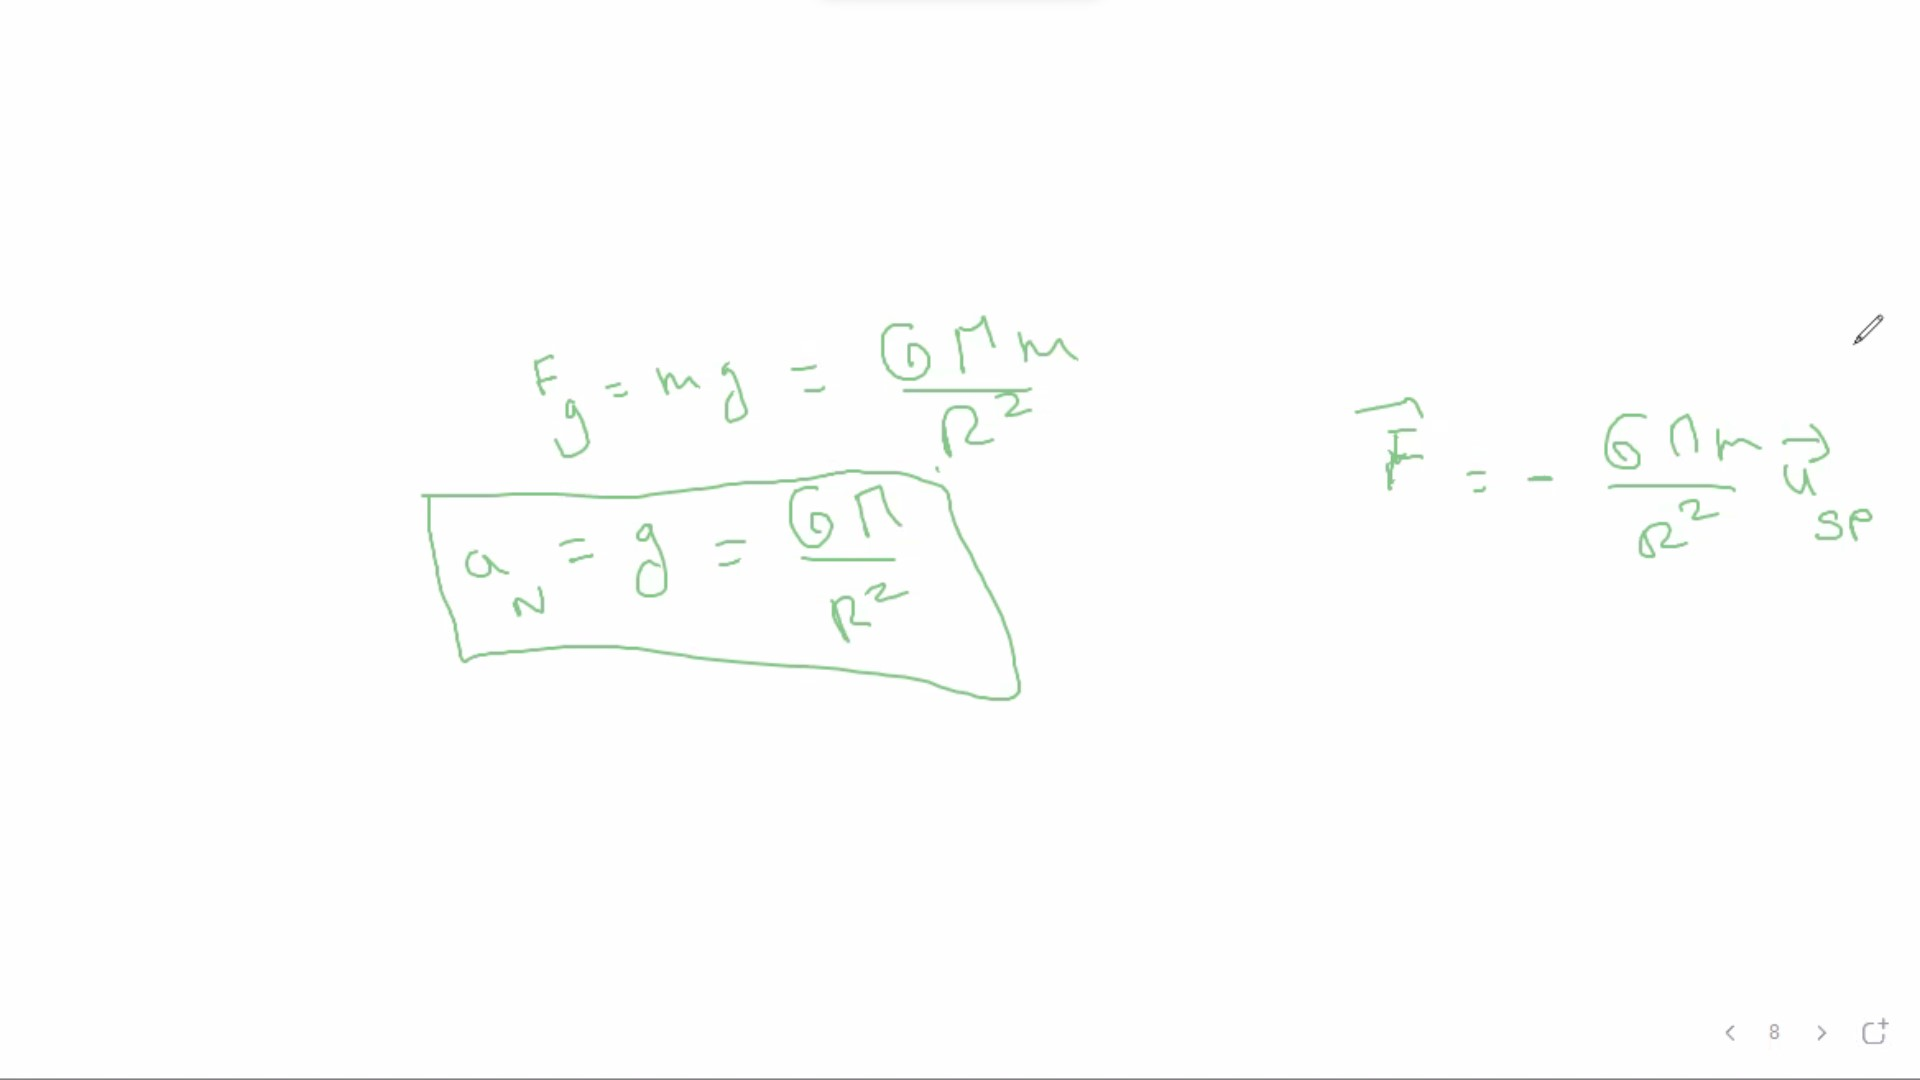 F_g = mg = GMm / R²
a_N = g = GM / R²
F⃗ = - GMm / R² u⃗_SP
8